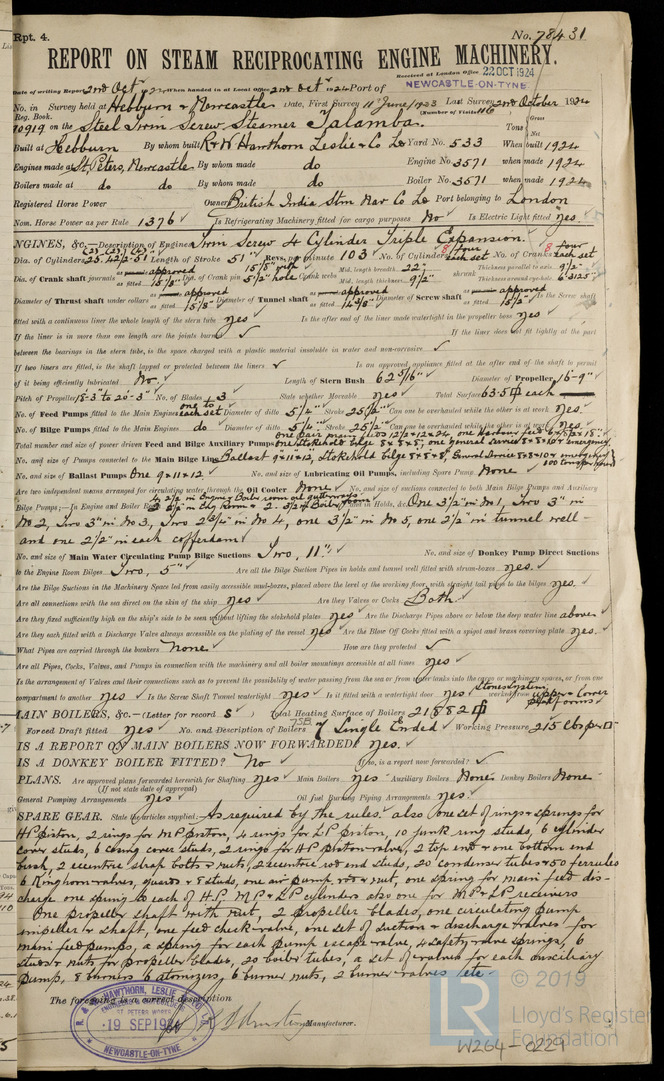 Rpt. 4.
No. 78431
REPORT ON STEAM RECIPROCATING ENGINE MACHINERY.
Received at London Office 22 OCT 1924
Date of writing Report 2nd Oct 1924 When handed in at Local Office 2nd Oct 1924 Port of NEWCASTLE-ON-TYNE
No. in Survey held at Hebburn & Newcastle Date, First Survey 11 June 1923 Last Survey 2nd October 1924
Reg. Book. (Number of Visits 116
70919 on the Steel Twin Screw Steamer Talamba. Tons Gross Net
Built at Hebburn By whom built R & W Hawthorn Leslie & Co Ld Yard No. 533 When built 1924
Engines made at St. Peters, Newcastle By whom made do Engine No. 3571 when made 1924
Boilers made at do do By whom made do Boiler No. 3571 when made 1924
Registered Horse Power Owners British India Stm Nav Co Ld Port belonging to London
Nom. Horse Power as per Rule 1376 Is Refrigerating Machinery fitted for cargo purposes No Is Electric Light fitted Yes.
ENGINES, &c.—Description of Engines Twin Screw 4 Cylinder Triple Expansion.
Dia. of Cylinders Length of Stroke 51" Revs. per minute 103 No. of Cylinders 8 four each set No. of Cranks 8 four each set
Dia. of Crank shaft journals as approved as fitted 15 1/8" Dia. of Crank pin 15 1/8" with 5 1/2" hole Crank webs Mid. length breadth 22" Mid. length thickness 9 1/2" shrunk Thickness parallel to axis 9 1/2" Thickness around eye-hole 6.3125"
Diameter of Thrust shaft under collars as approved as fitted 15 1/8" Diameter of Tunnel shaft as approved as fitted 14 3/8" Diameter of Screw shaft as approved as fitted 15 1/2" Is the Screw shaft
fitted with a continuous liner the whole length of the stern tube yes Is the after end of the liner made watertight in the propeller boss yes
If the liner is in more than one length are the joints burned If the liner does not fit tightly at the part
between the bearings in the stern tube, is the space charged with a plastic material insoluble in water and non-corrosive
If two liners are fitted, is the shaft lapped or protected between the liners Is an approved appliance fitted at the after end of the shaft to permit
of it being efficiently lubricated No. Length of Stern Bush 62 5/16" Diameter of Propeller 16'-9"
Pitch of Propeller 18-3 to 20-3" No. of Blades 3 State whether Moveable Yes Total Surface 63.5 each
No. of Feed Pumps fitted to the Main Engines one to each set Diameter of ditto 5 1/4" Stroke 25 1/2" Can one be overhauled while the other is at work Yes
No. of Bilge Pumps fitted to the Main Engines do Diameter of ditto 5 1/4" Stroke 25 1/2" Can one be overhauled while the other is at work Yes
Total number and size of power driven Feed and Bilge Auxiliary Pumps
No. and size of Pumps connected to the Main Bilge Line Ballast 9x11x12
No. and size of Ballast Pumps One 9x11x12 No. and size of Lubricating Oil Pumps, including Spare Pump None
Are two independent means arranged for circulating water through the Oil Cooler None No. and size of suctions connected to both Main Bilge Pumps and Auxiliary
Bilge Pumps;—In Engine and Boiler Room and in Holds, &c. One 3 1/2" in No 1, Two 3" in
No 2, Two 3" in No 3, Two 2 3/4" in No 4, one 3 1/2" in No 5, one 2 1/2" in tunnel well
and one 2 1/2" in each cofferdam
No. and size of Main Water Circulating Pump Bilge Suctions Two, 11" No. and size of Donkey Pump Direct Suctions
to the Engine Room Bilges Two, 5" Are all the Bilge Suction Pipes in holds and tunnel well fitted with strum-boxes yes.
Are the Bilge Suctions in the Machinery Space led from easily accessible mud-boxes, placed above the level of the working floor, with straight tail pipes to the bilges Yes.
Are all connections with the sea direct on the skin of the ship Yes Are they Valves or Cocks Both.
Are they fixed sufficiently high on the ship's side to be seen without lifting the stokehold plates yes Are the Discharge Pipes above or below the deep water line above
Are they each fitted with a Discharge Valve always accessible on the plating of the vessel Yes Are the Blow Off Cocks fitted with a spigot and brass covering plate Yes.
What Pipes are carried through the bunkers None How are they protected
Are all Pipes, Cocks, Valves, and Pumps in connection with the machinery and all boiler mountings accessible at all times yes
Is the arrangement of Valves and their Connections such as to prevent the possibility of water passing from the sea or from water tanks into the cargo or machinery spaces, or from one
compartment to another yes Is the Screw Shaft Tunnel watertight Yes Is it fitted with a watertight door Yes worked from Stones system upper & lower platforms
MAIN BOILERS, &c.—(Letter for record S ) Total Heating Surface of Boilers 21882
Forced Draft fitted Yes No. and Description of Boilers 7SB 7 Single Ended Working Pressure 215 lbs
IS A REPORT ON MAIN BOILERS NOW FORWARDED? Yes.
IS A DONKEY BOILER FITTED? No If so, is a report now forwarded?
PLANS. Are approved plans forwarded herewith for Shafting Yes Main Boilers Yes Auxiliary Boilers None Donkey Boilers None
(If not state date of approval)
General Pumping Arrangements Yes Oil fuel Burning Piping Arrangements Yes.
SPARE GEAR. State the articles supplied:— As required by the rules. also one set of rings & springs for
HP piston, 2 rings for MP piston, 4 rings for LP piston, 10 junk ring studs, 6 cylinder
cover studs, 6 casing cover studs, 2 rings for HP piston-valve, 2 top end & one bottom end
bush, 2 eccentric strap bolts & nuts, 2 eccentric rod end studs, 20 condenser tubes & 50 ferrules
6 Kinghorn-valves, guards & 8 studs, one air pump rod & nut, one spring for main feed dis-
charge one spring to each of H.P. M.P & L.P cylinders also one for MP & LP receivers
One propeller shaft with nut, 2 propeller blades, one circulating pump
impeller & shaft, one feed check-valve, one set of suction & discharge valves for
main feed pumps, a spring for each pump escape-valve, 4 safety-valve springs, 6
studs & nuts for propeller blades, 20 boiler tubes, a set of valves for each auxiliary
pump, 8 burners 6 atomizers, 6 burner nuts, 2 burner-valves etc.
The foregoing is a correct description
Manufacturer.
R. & W. HAWTHORN, LESLIE & CO. LTD.
ST PETERS WORKS
19 SEP 1924
NEWCASTLE-ON-TYNE
LR © 2019
Lloyd's Register
Foundation
W264-0229